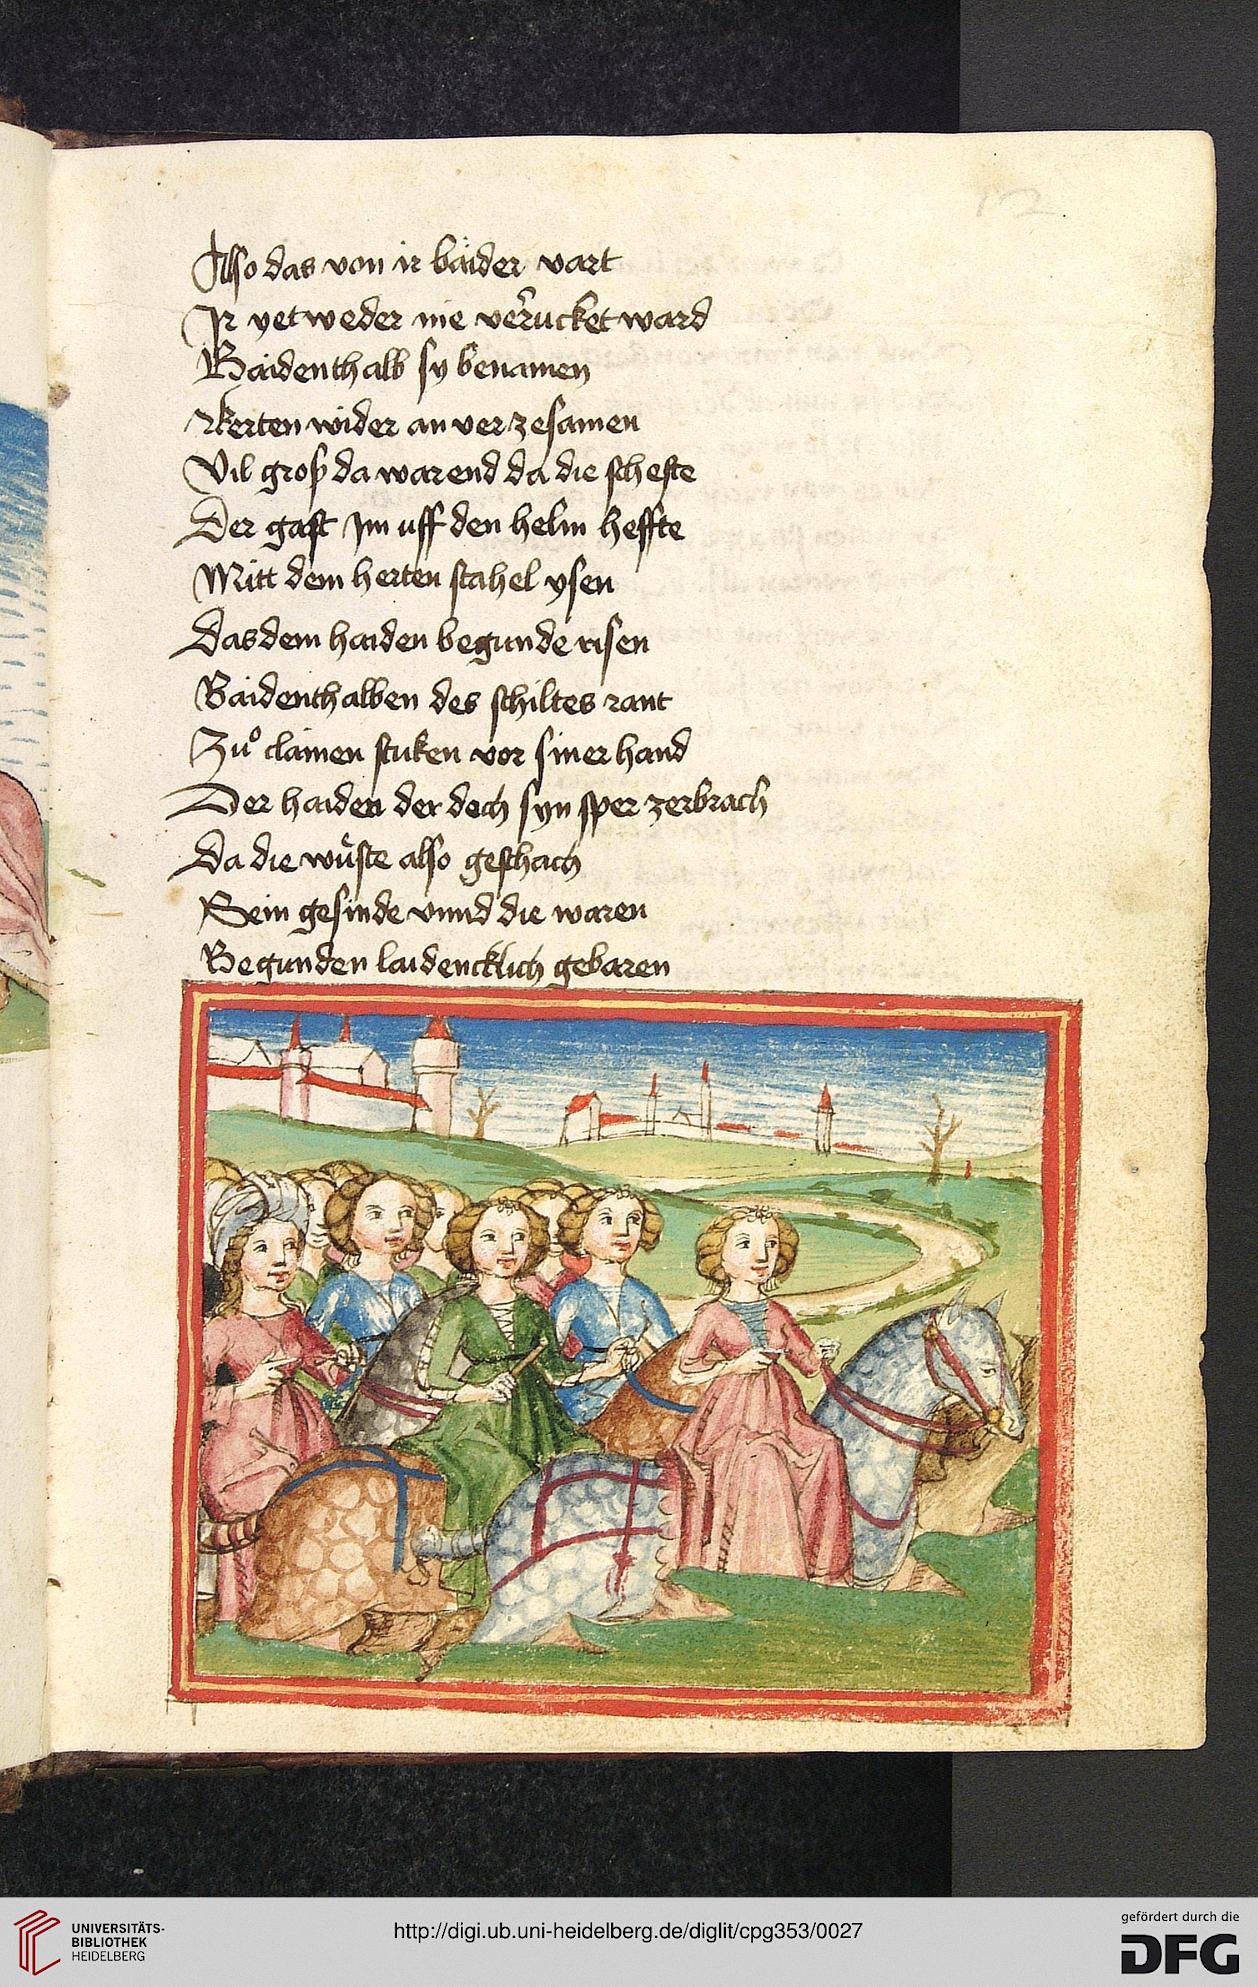 12
Also das von ir baider vart
Ir yetweder nie verrucket ward
Baidenthalb sy benamen
Kerten wider an ver zesamen
Vil groß da warend da die schefte
Der gast Im uff den helm heffte
Mitt dem herten stahel ysen
Das dem haiden begunde risen
Baidenthalben des schiltes rant
Zuͦ clainen stuken vor siner hand
Der haiden der doch syn sper zerbrach
Da die wuͤste also geschach
Sein gesinde vnnd die waren
Begunden laidencklich gebaren
UNIVERSITÄTS-
BIBLIOTHEK
HEIDELBERG
http://digi.ub.uni-heidelberg.de/diglit/cpg353/0027
gefördert durch die
DFG